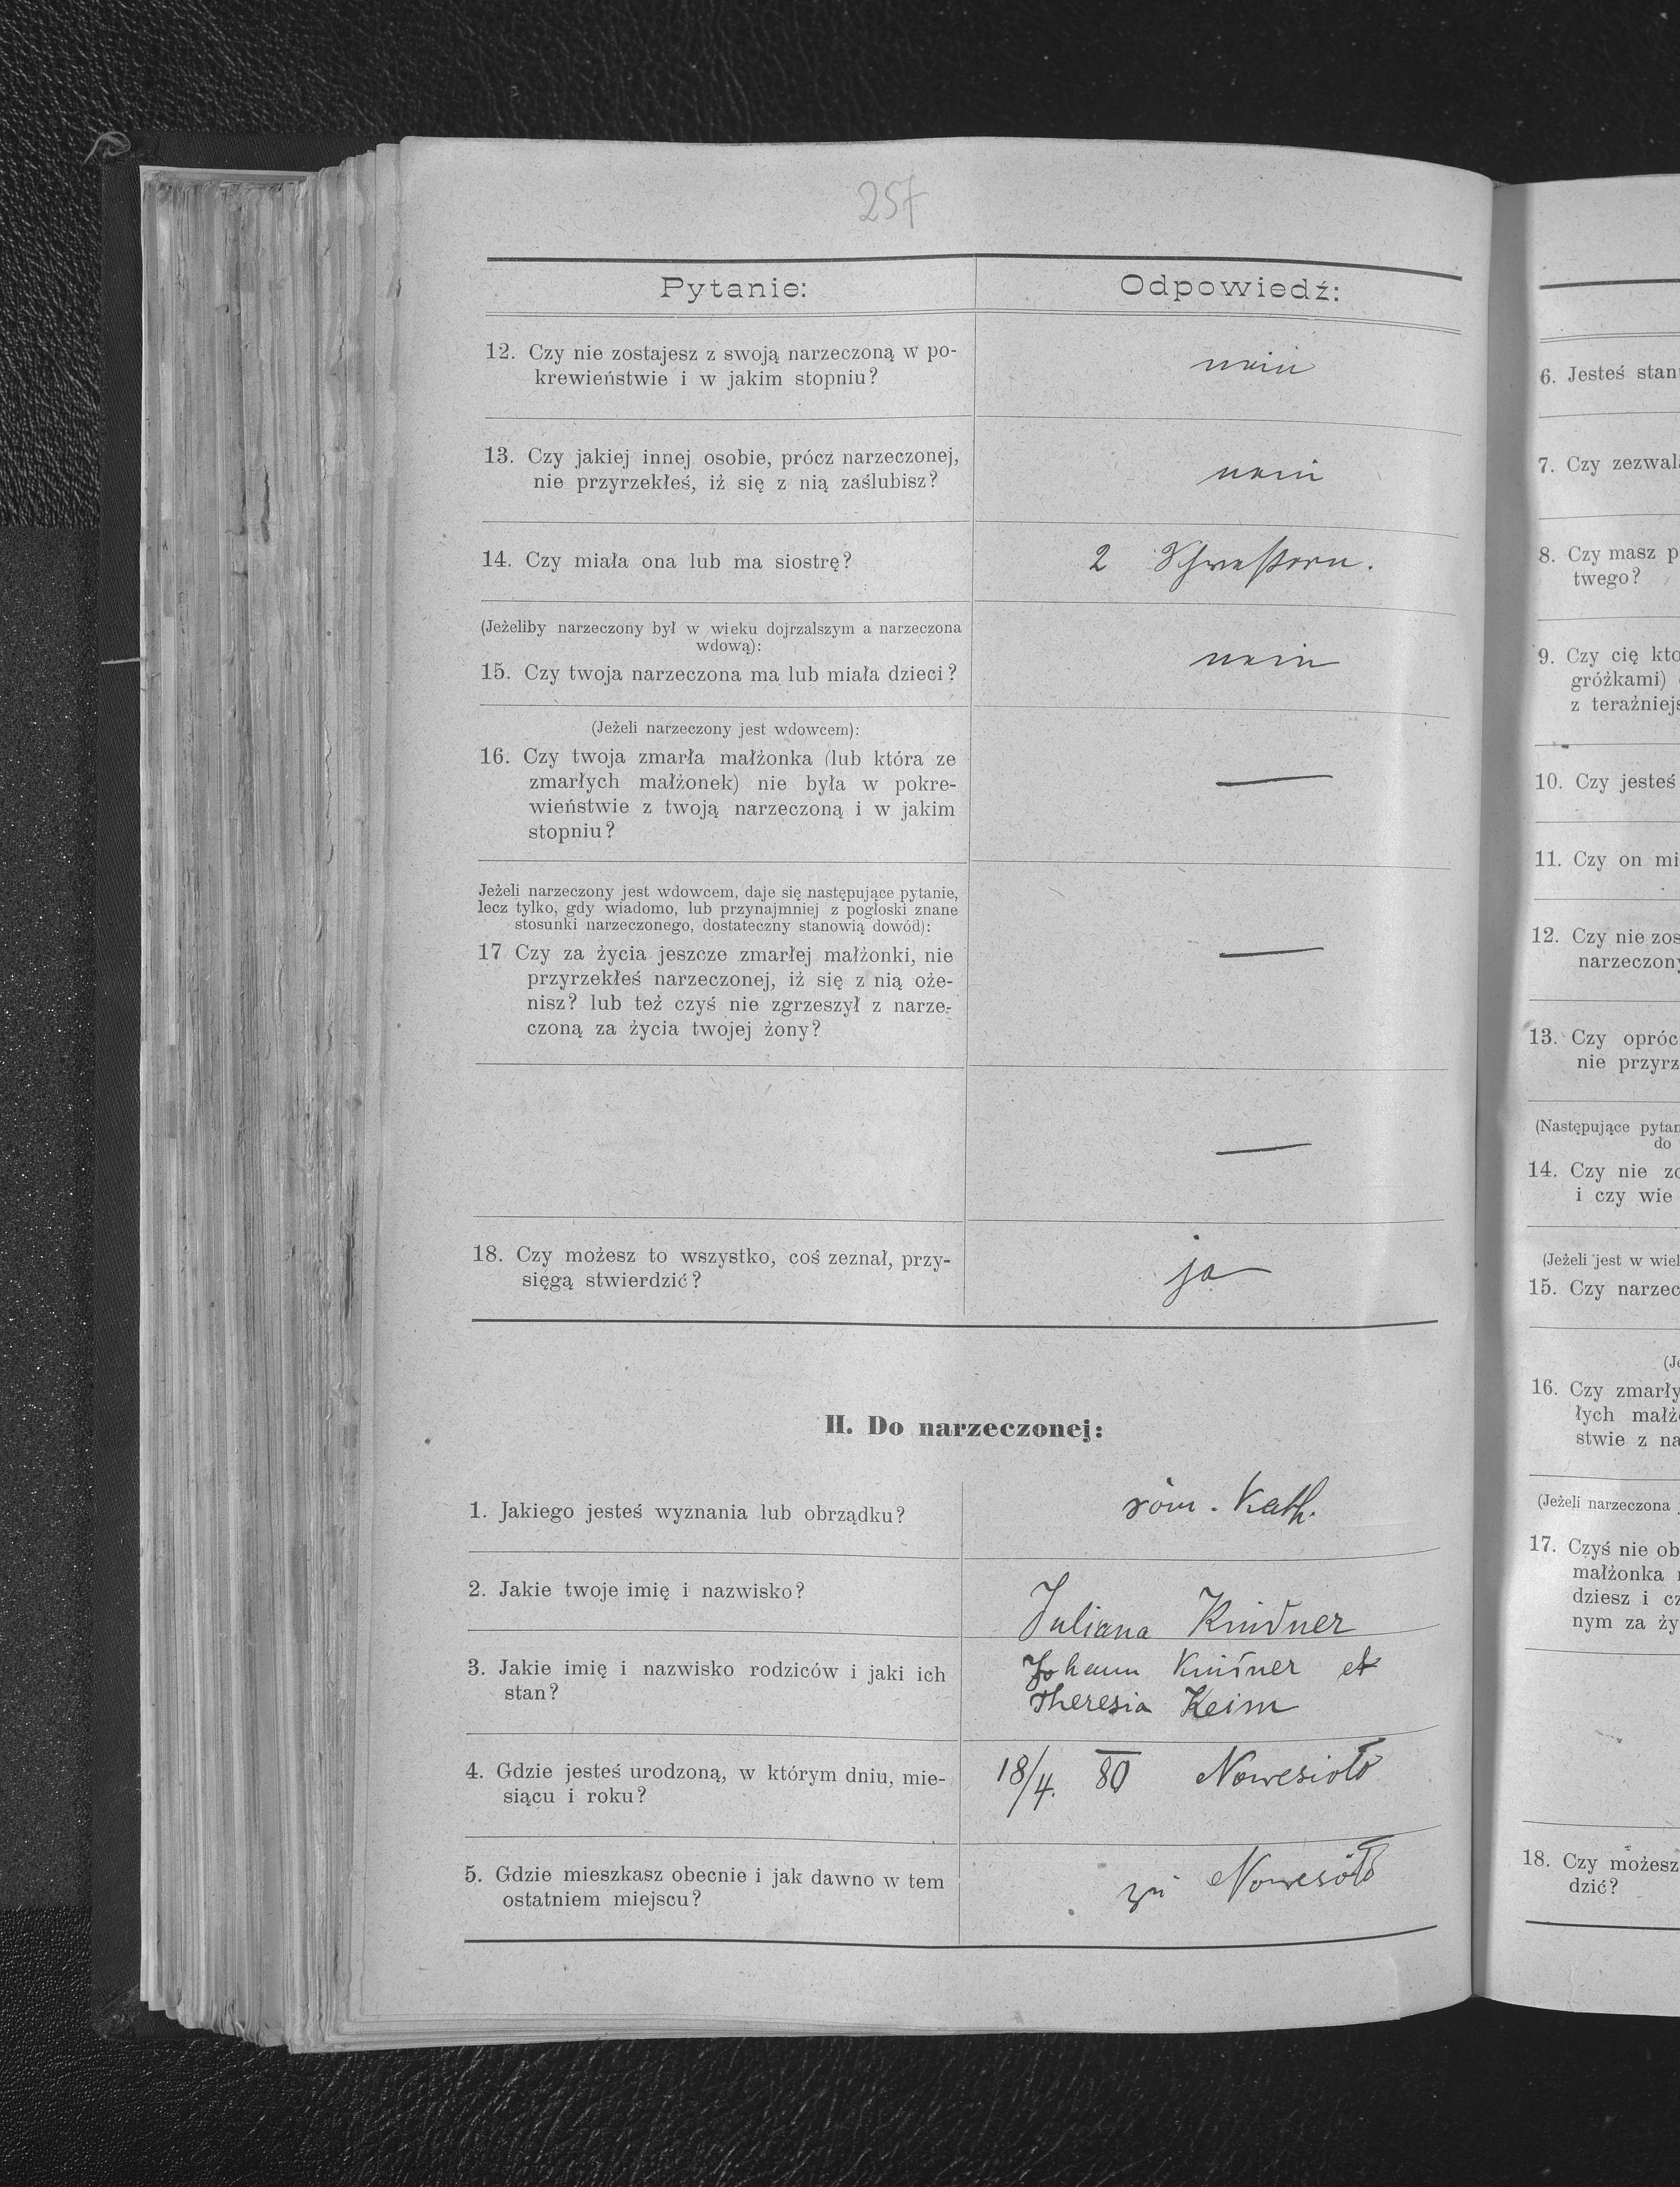 257
Pytanie:
Odpowiedź:
12. Czy nie zostajesz z swoją narzeczoną w po-
krewieństwie i w jakim stopniu?
nein
13. Czy jakiej innej osobie, prócz narzeczonej,
nie przyrzekłeś, iż się z nią zaślubisz?
nein
14. Czy miała ona lub ma siostrę?
2 Schwestern.
(Jeżeliby narzeczony był w wieku dojrzalszym a narzeczona
wdową):
15. Czy twoja narzeczona ma lub miała dzieci?
nein
(Jeżeli narzeczony jest wdowcem):
16. Czy twoja zmarła małżonka (lub która ze
zmarłych małżonek) nie była w pokre-
wieństwie z twoją narzeczoną i w jakim
stopniu?
—
Jeżeli narzeczony jest wdowcem, daje się następujące pytanie,
lecz tylko, gdy wiadomo, lub przynajmniej z pogłoski znane
stosunki narzeczonego, dostateczny stanowią dowód):
17 Czy za życia jeszcze zmarłej małżonki, nie
przyrzekłeś narzeczonej, iż się z nią oże-
nisz? lub też czyś nie zgrzeszył z narze-
czoną za życia twojej żony?
—
—
18. Czy możesz to wszystko, coś zeznał, przy-
sięgą stwierdzić?
ja
II. Do narzeczonej:
1. Jakiego jesteś wyznania lub obrządku?
röm. Kath.
2. Jakie twoje imię i nazwisko?
Juliana Kindner
3. Jakie imię i nazwisko rodziców i jaki ich
stan?
Johann Kindner et
Theresia Keim
4. Gdzie jesteś urodzoną, w którym dniu, mie-
siącu i roku?
18/4. 80 Nowesioło
5. Gdzie mieszkasz obecnie i jak dawno w tem
ostatniem miejscu?
zu Nowesioło
6. Jesteś stan
7. Czy zezwal
8. Czy masz p
twego?
9. Czy cię kto
gróżkami)
z teraźniejs
10. Czy jesteś
11. Czy on mi
12. Czy nie zos
narzeczony
13. Czy opróc
nie przyrz
(Następujące pytan
do
14. Czy nie zo
i czy wie
(Jeżeli jest w wiel
15. Czy narzec
(Je
16. Czy zmarły
łych małż
stwie z na
(Jeżeli narzeczona
17. Czyś nie ob
małżonka
dziesz i cz
nym za ży
18. Czy możesz
dzić?